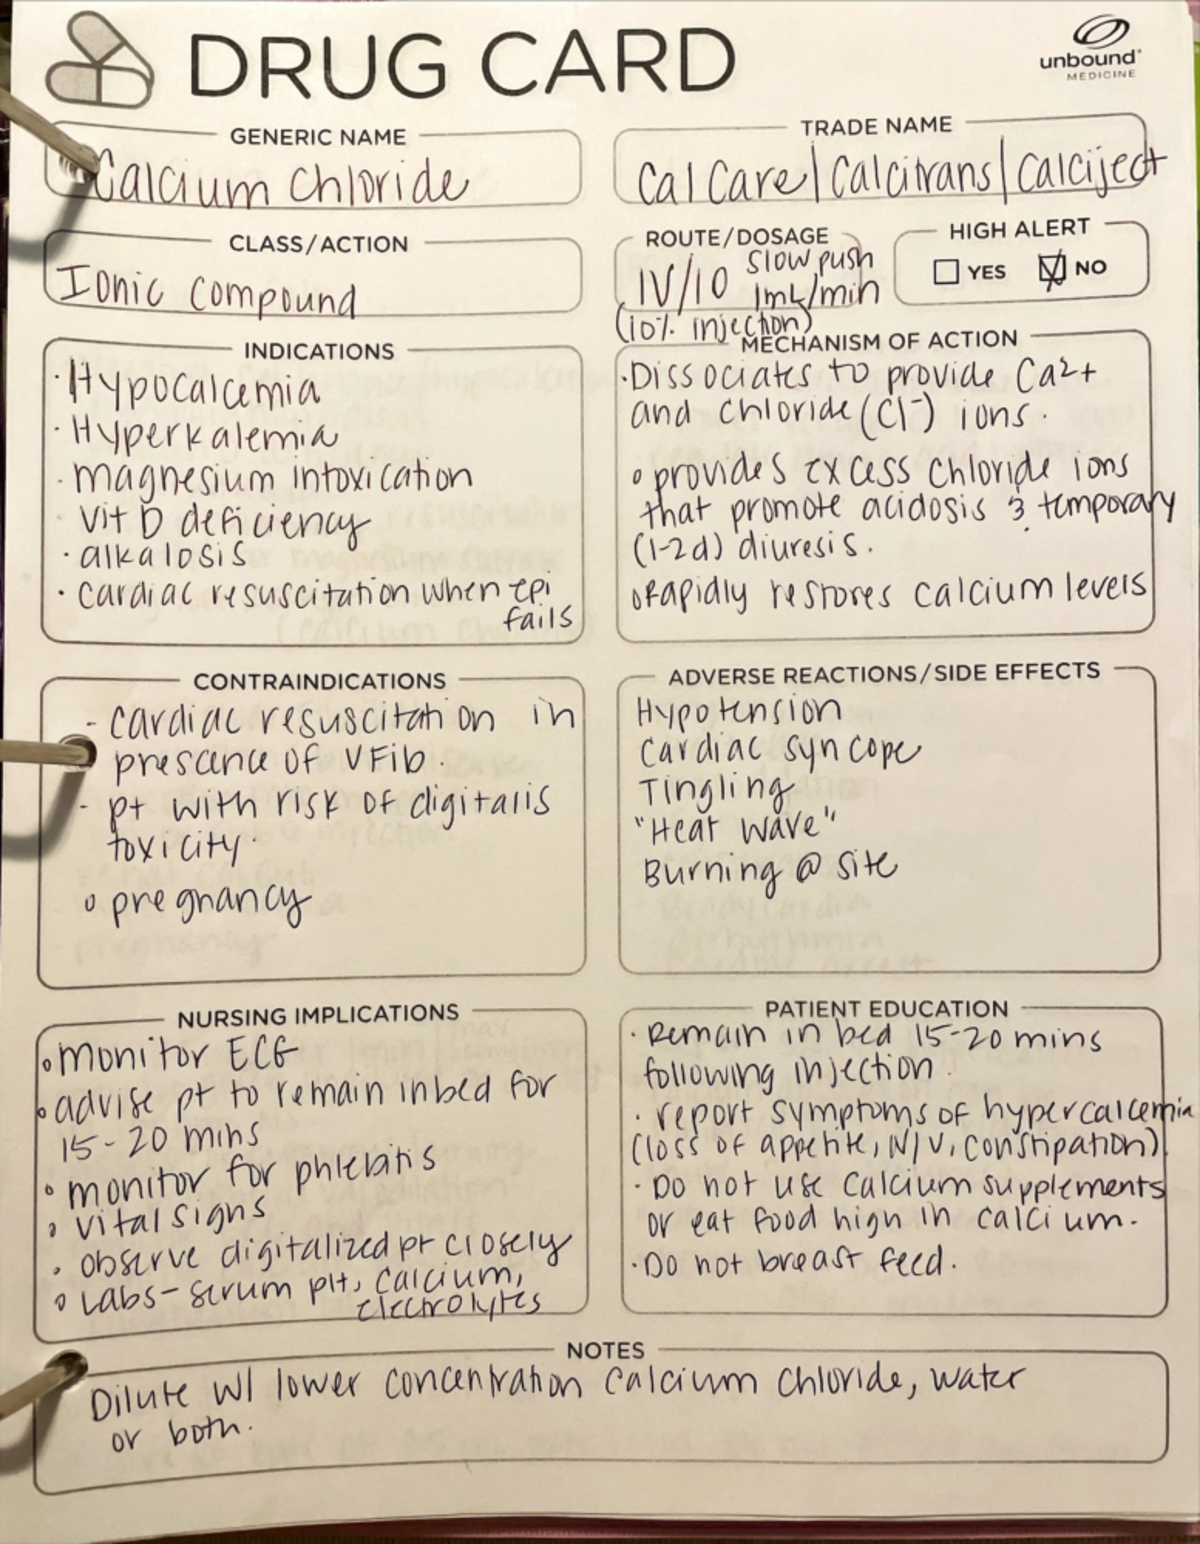 DRUG CARD
unbound
MEDICINE
GENERIC NAME
Calcium Chloride
TRADE NAME
CalCare/Calcitrans/Calciject
CLASS/ACTION
Ionic compound
ROUTE/DOSAGE
IV/10 slow push
1mL/min
(10% injection)
HIGH ALERT
YES NO
INDICATIONS
· Hypocalcemia
· Hyperkalemia
· magnesium intoxication
· Vit D deficiency
· alkalosis
· cardiac resuscitation when epi
fails
MECHANISM OF ACTION
· Dissociates to provide Ca2+
and chloride (Cl-) ions.
• provides excess chloride ions
that promote acidosis & temporary
(1-2d) diuresis.
• Rapidly restores calcium levels
CONTRAINDICATIONS
- cardiac resuscitation in
presence of VFib.
- pt with risk of digitalis
toxicity.
• pregnancy
ADVERSE REACTIONS/SIDE EFFECTS
Hypotension
Cardiac syncope
Tingling
"Heat Wave"
Burning @ site
NURSING IMPLICATIONS
• monitor ECG
• advise pt to remain in bed for
15-20 mins
• monitor for phlebitis
• vital signs
• observe digitalized pt closely
• Labs- serum plt, calcium,
electrolytes
PATIENT EDUCATION
· Remain in bed 15-20 mins
following injection.
· report symptoms of hypercalcemia
(loss of appetite, N/V, constipation)
· Do not use calcium supplements
or eat food high in calcium.
· Do not breast feed.
NOTES
Dilute w/ lower concentration calcium chloride, water
or both.